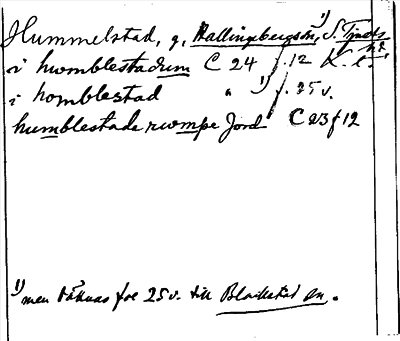 Hummelstad, g, Hallingebergs sn, 1) S. Tjusts hd
i humblestadum C 24 f. 12 K. l.
i homblestad " 1) f. 25 v.
humblestada rwmpe Jord C 23 f 12
1) men räknas foe 25 v. till Blackstad sn.